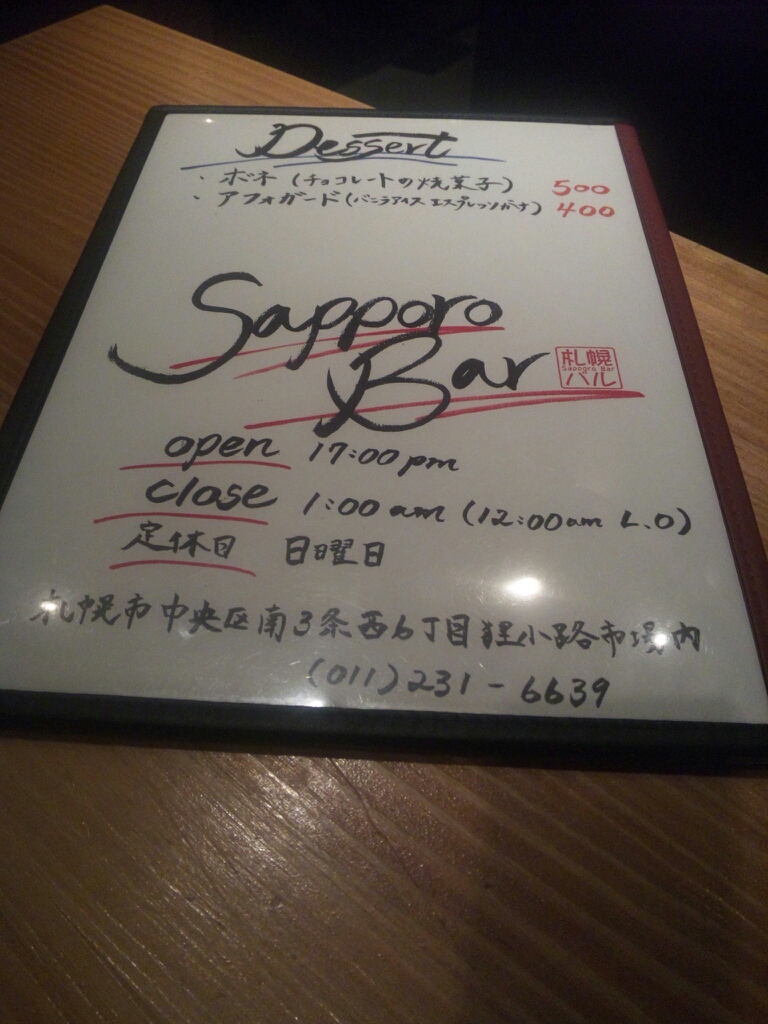 Dessert
・ボネ (チョコレートの焼菓子) 500
・アフォガード (バニラアイス エスプレッソがけ) 400
Sapporo
Bar
札幌
Sapporo Bar
バル
open 17:00 pm
close 1:00 am (12:00am L.O)
定休日 日曜日
札幌市中央区南3条西6丁目狸小路市場内
(011)231-6639